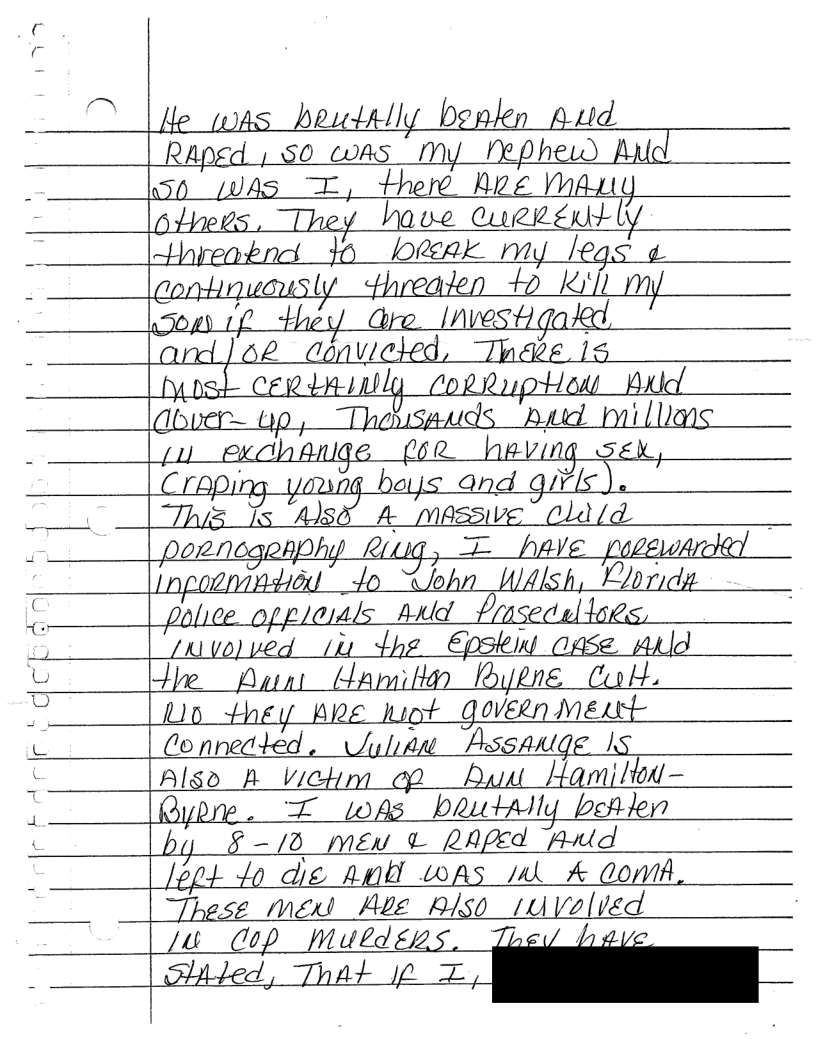 He WAS bRUtAlly bEAten ANd
RAPEd, SO WAS my nephew ANd
SO WAS I, there ARE MANY
Others. They have CURRENtly
threatend to bREAK my legs &
continuously threaten to Kill my
SON if they are investigated
and/OR convicted, THERE is
most CERtAiNly CORRuption ANd
Cover-up, ThousANds ANd millions
iN exchANge fOR hAving SEX,
(raping young boys and girls).
This is AlSO A MASSIVE Child
PORNogRAphy RiNg, I HAVE foreWARded
iNfORMAtiON to John WAlsh, FloridA
Police OffiCiAls ANd Prosecutors
iNvolved iN the EpsteiN CASE ANd
the ANN HAmilton ByRNE Cult.
NO they ARE Not govERNMENt
Connected. JuliAN ASSANGE is
AlSO A VICtim of ANN HAmiltoN-
ByRNe. I WAS bRUtAlly bEAten
by 8-10 MEN & RAPEd ANd
left to diE ANd WAS iN A COMA.
These MEN ARE AlSO iNvolvEd
iN COP MURdERS. They hAVE
StAted, ThAt if I,